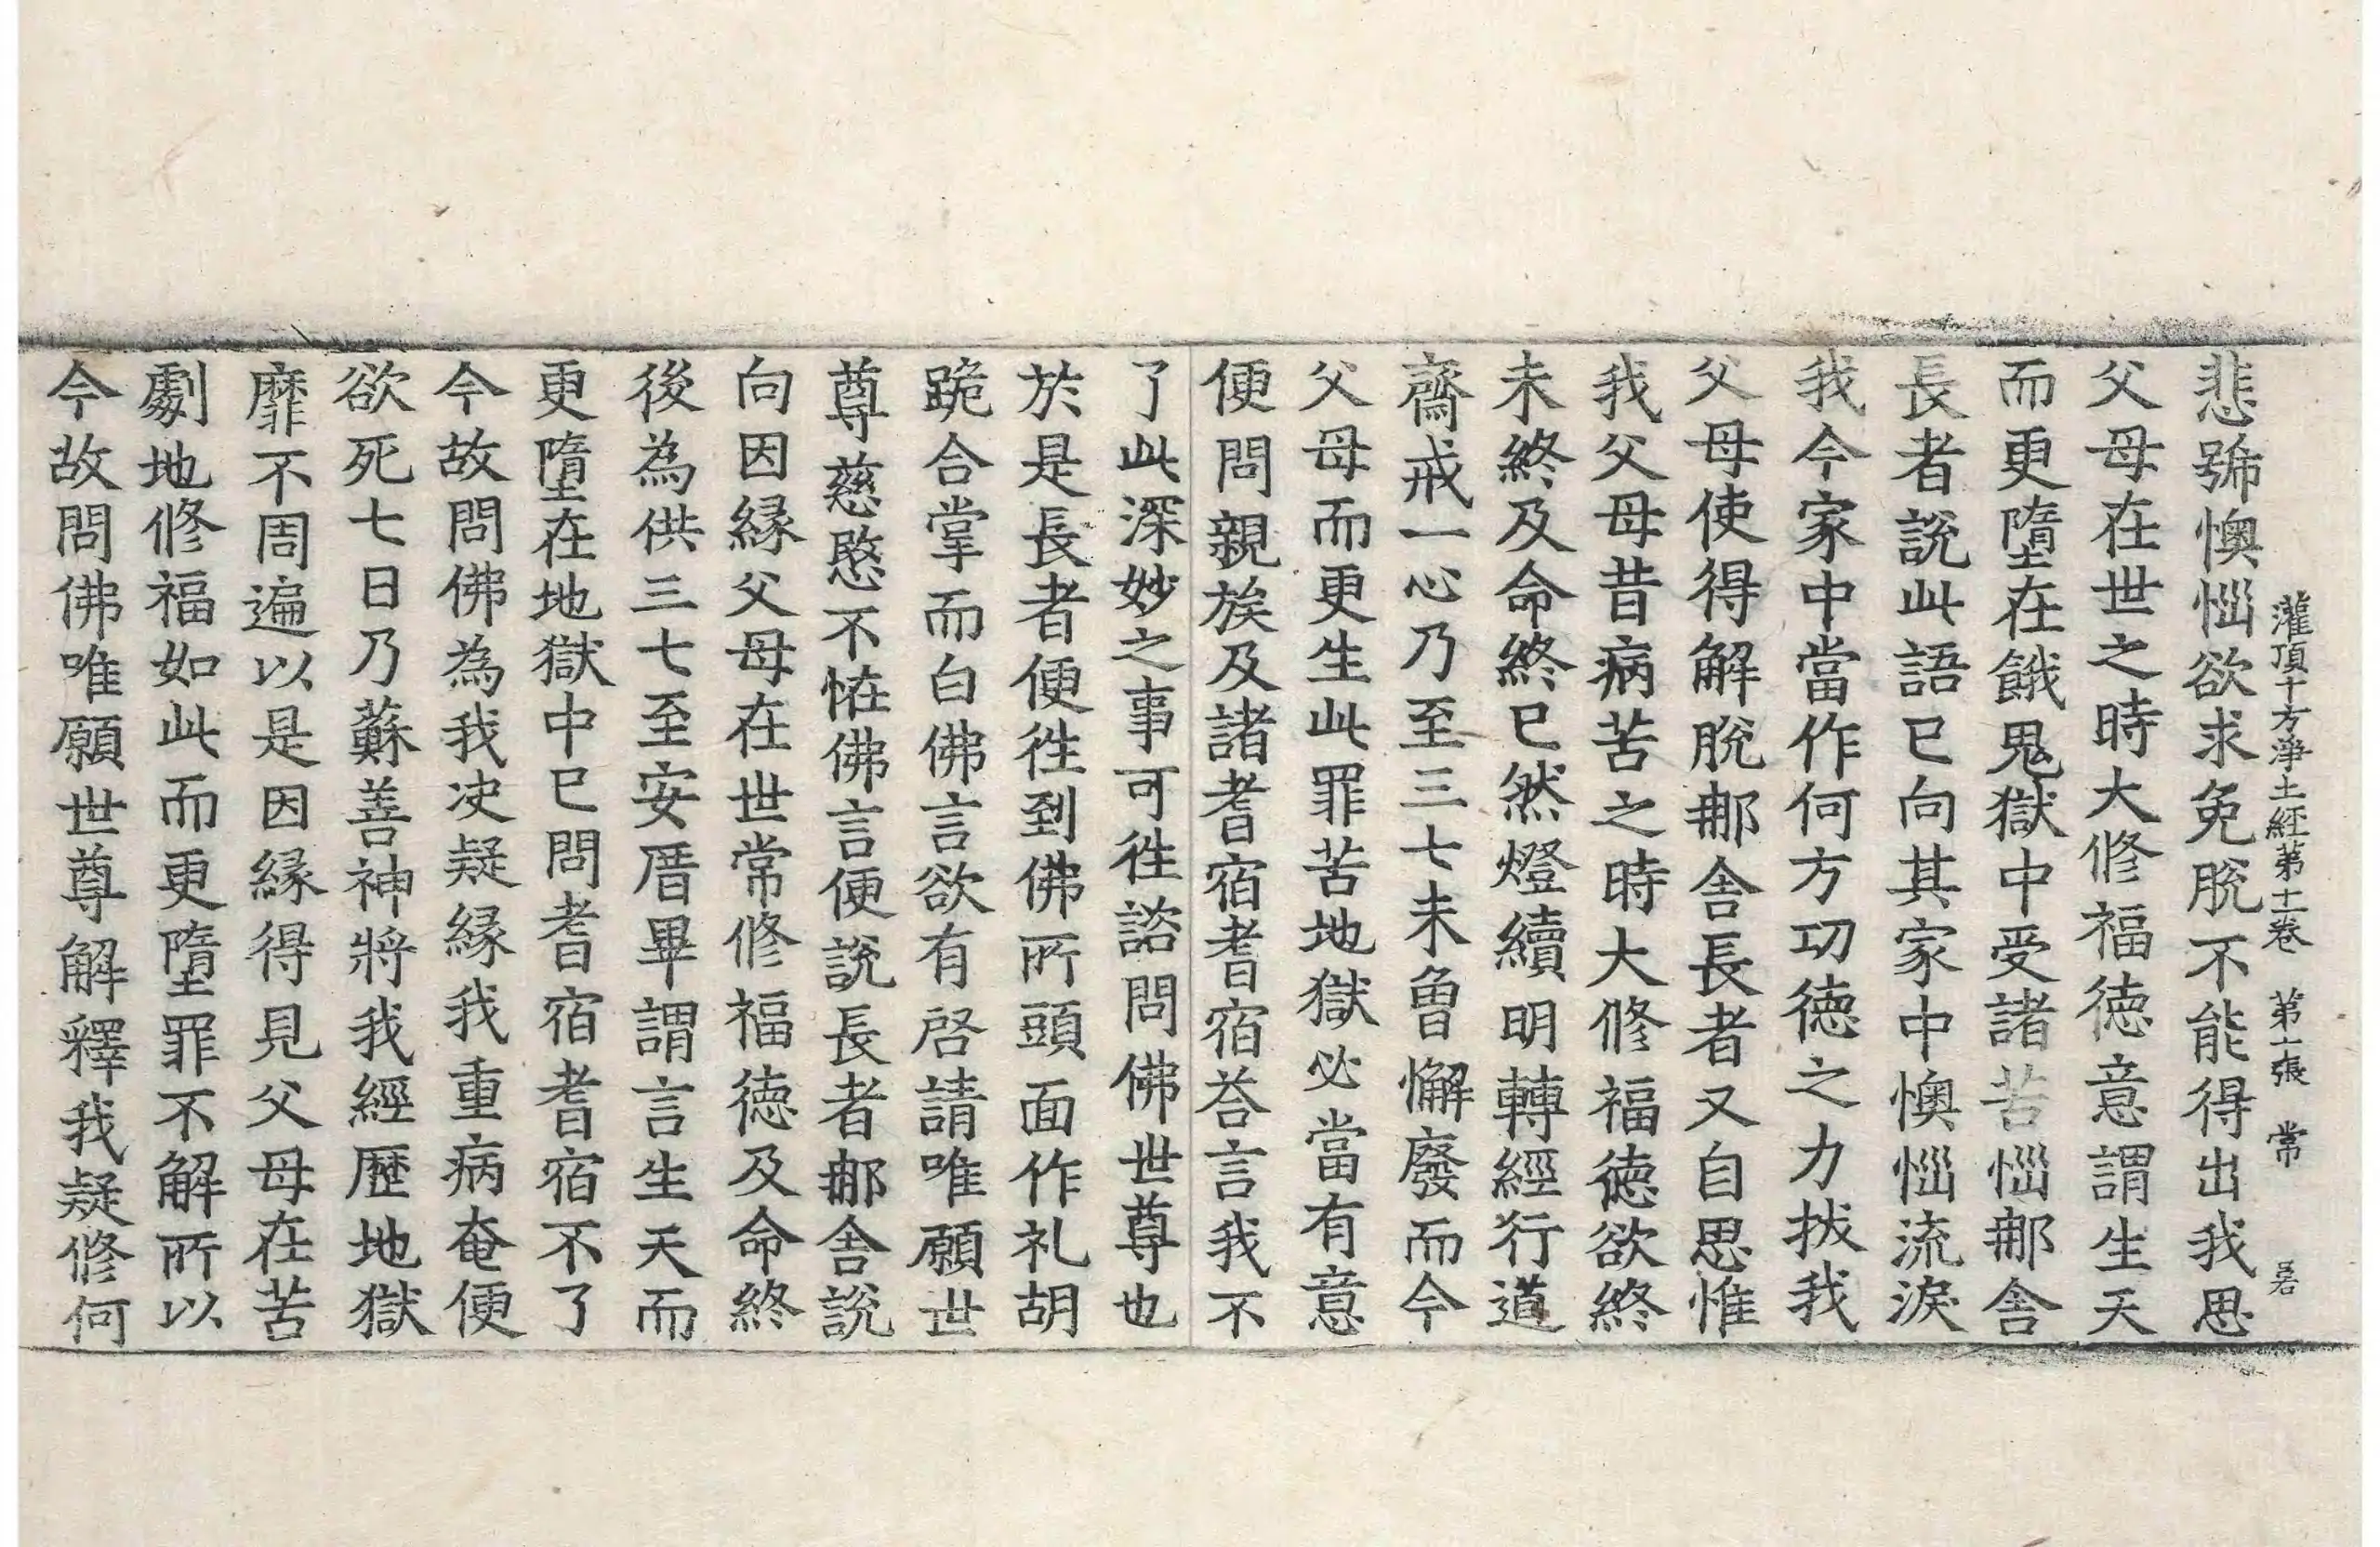 灌頂十方淨土經第十一卷　第十一張　常
悲號懊惱欲求免脫不能得出我思
父母在世之時大修福德意謂生天
而更墮在餓鬼獄中受諸苦惱那舍
長者說此語已向其家中懊惱流淚
我今家中當作何方功德之力拔我
父母使得解脫那舍長者又自思惟
我父母昔病苦之時大修福德欲終
未終及命終已然燈續明轉經行道
齋戒一心乃至三七未曾懈廢而今
父母而更生此罪苦地獄必當有意
便問親族及諸耆宿耆宿荅言我不
了此深妙之事可往諮問佛世尊也
於是長者便往到佛所頭面作礼胡
跪合掌而白佛言欲有啓請唯願世
尊慈愍不恠佛言便說長者那舍說
向因緣父母在世常修福德及命終
後為供三七至安厝畢謂言生天而
更墮在地獄中已問耆宿耆宿不了
今故問佛為我决疑緣我重病奄便
欲死七日乃蘇善神將我經歷地獄
靡不周遍以是因緣得見父母在苦
劇地修福如此而更墮罪不解所以
今故問佛唯願世尊解釋我疑修何